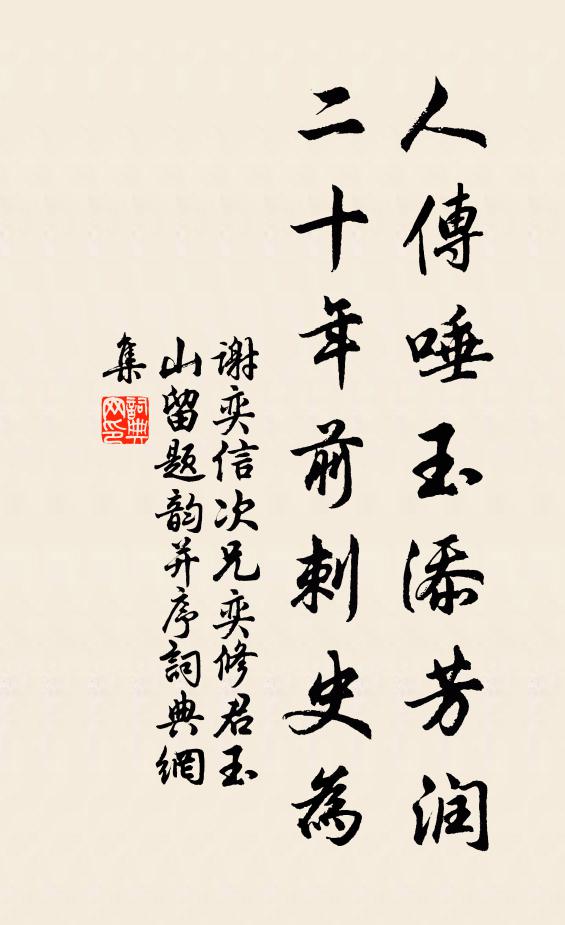 人傳唾玉添芳润
二十年前刺史為
谢奕信次兄奕修君玉
山留题韵并序詞典網
集
詞典網印